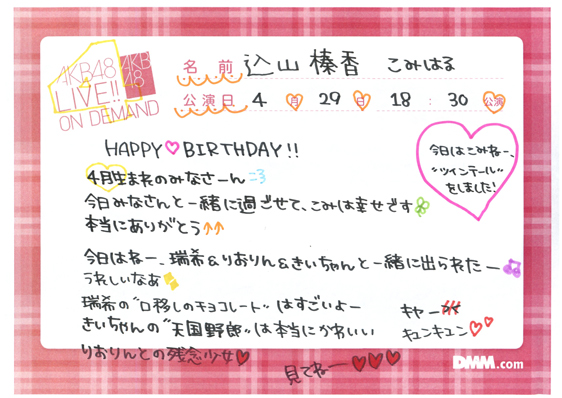 AKB48
LIVE!!
ON DEMAND
AKB
48
名前 込山榛香 こみはる
公演日 4月29日 18:30公演
HAPPY♡BIRTHDAY!!
今日はこみねー、
"ツインテール"
をしました!
4月生まれのみなさーん
今日みなさんと一緒に過ごせて、こみは幸せです
本当にありがとう↑↑
今日はねー、瑞希&りおりん&きぃちゃんと一緒に出られたー
うれしいなあ
瑞希の"口移しのチョコレート"はすごいよー キャー
きぃちゃんの"天国野郎"は本当にかわいい キュンキュン♡♡
りおりんとの残念少女♥ 見てねー♥♥♥
DMM.com